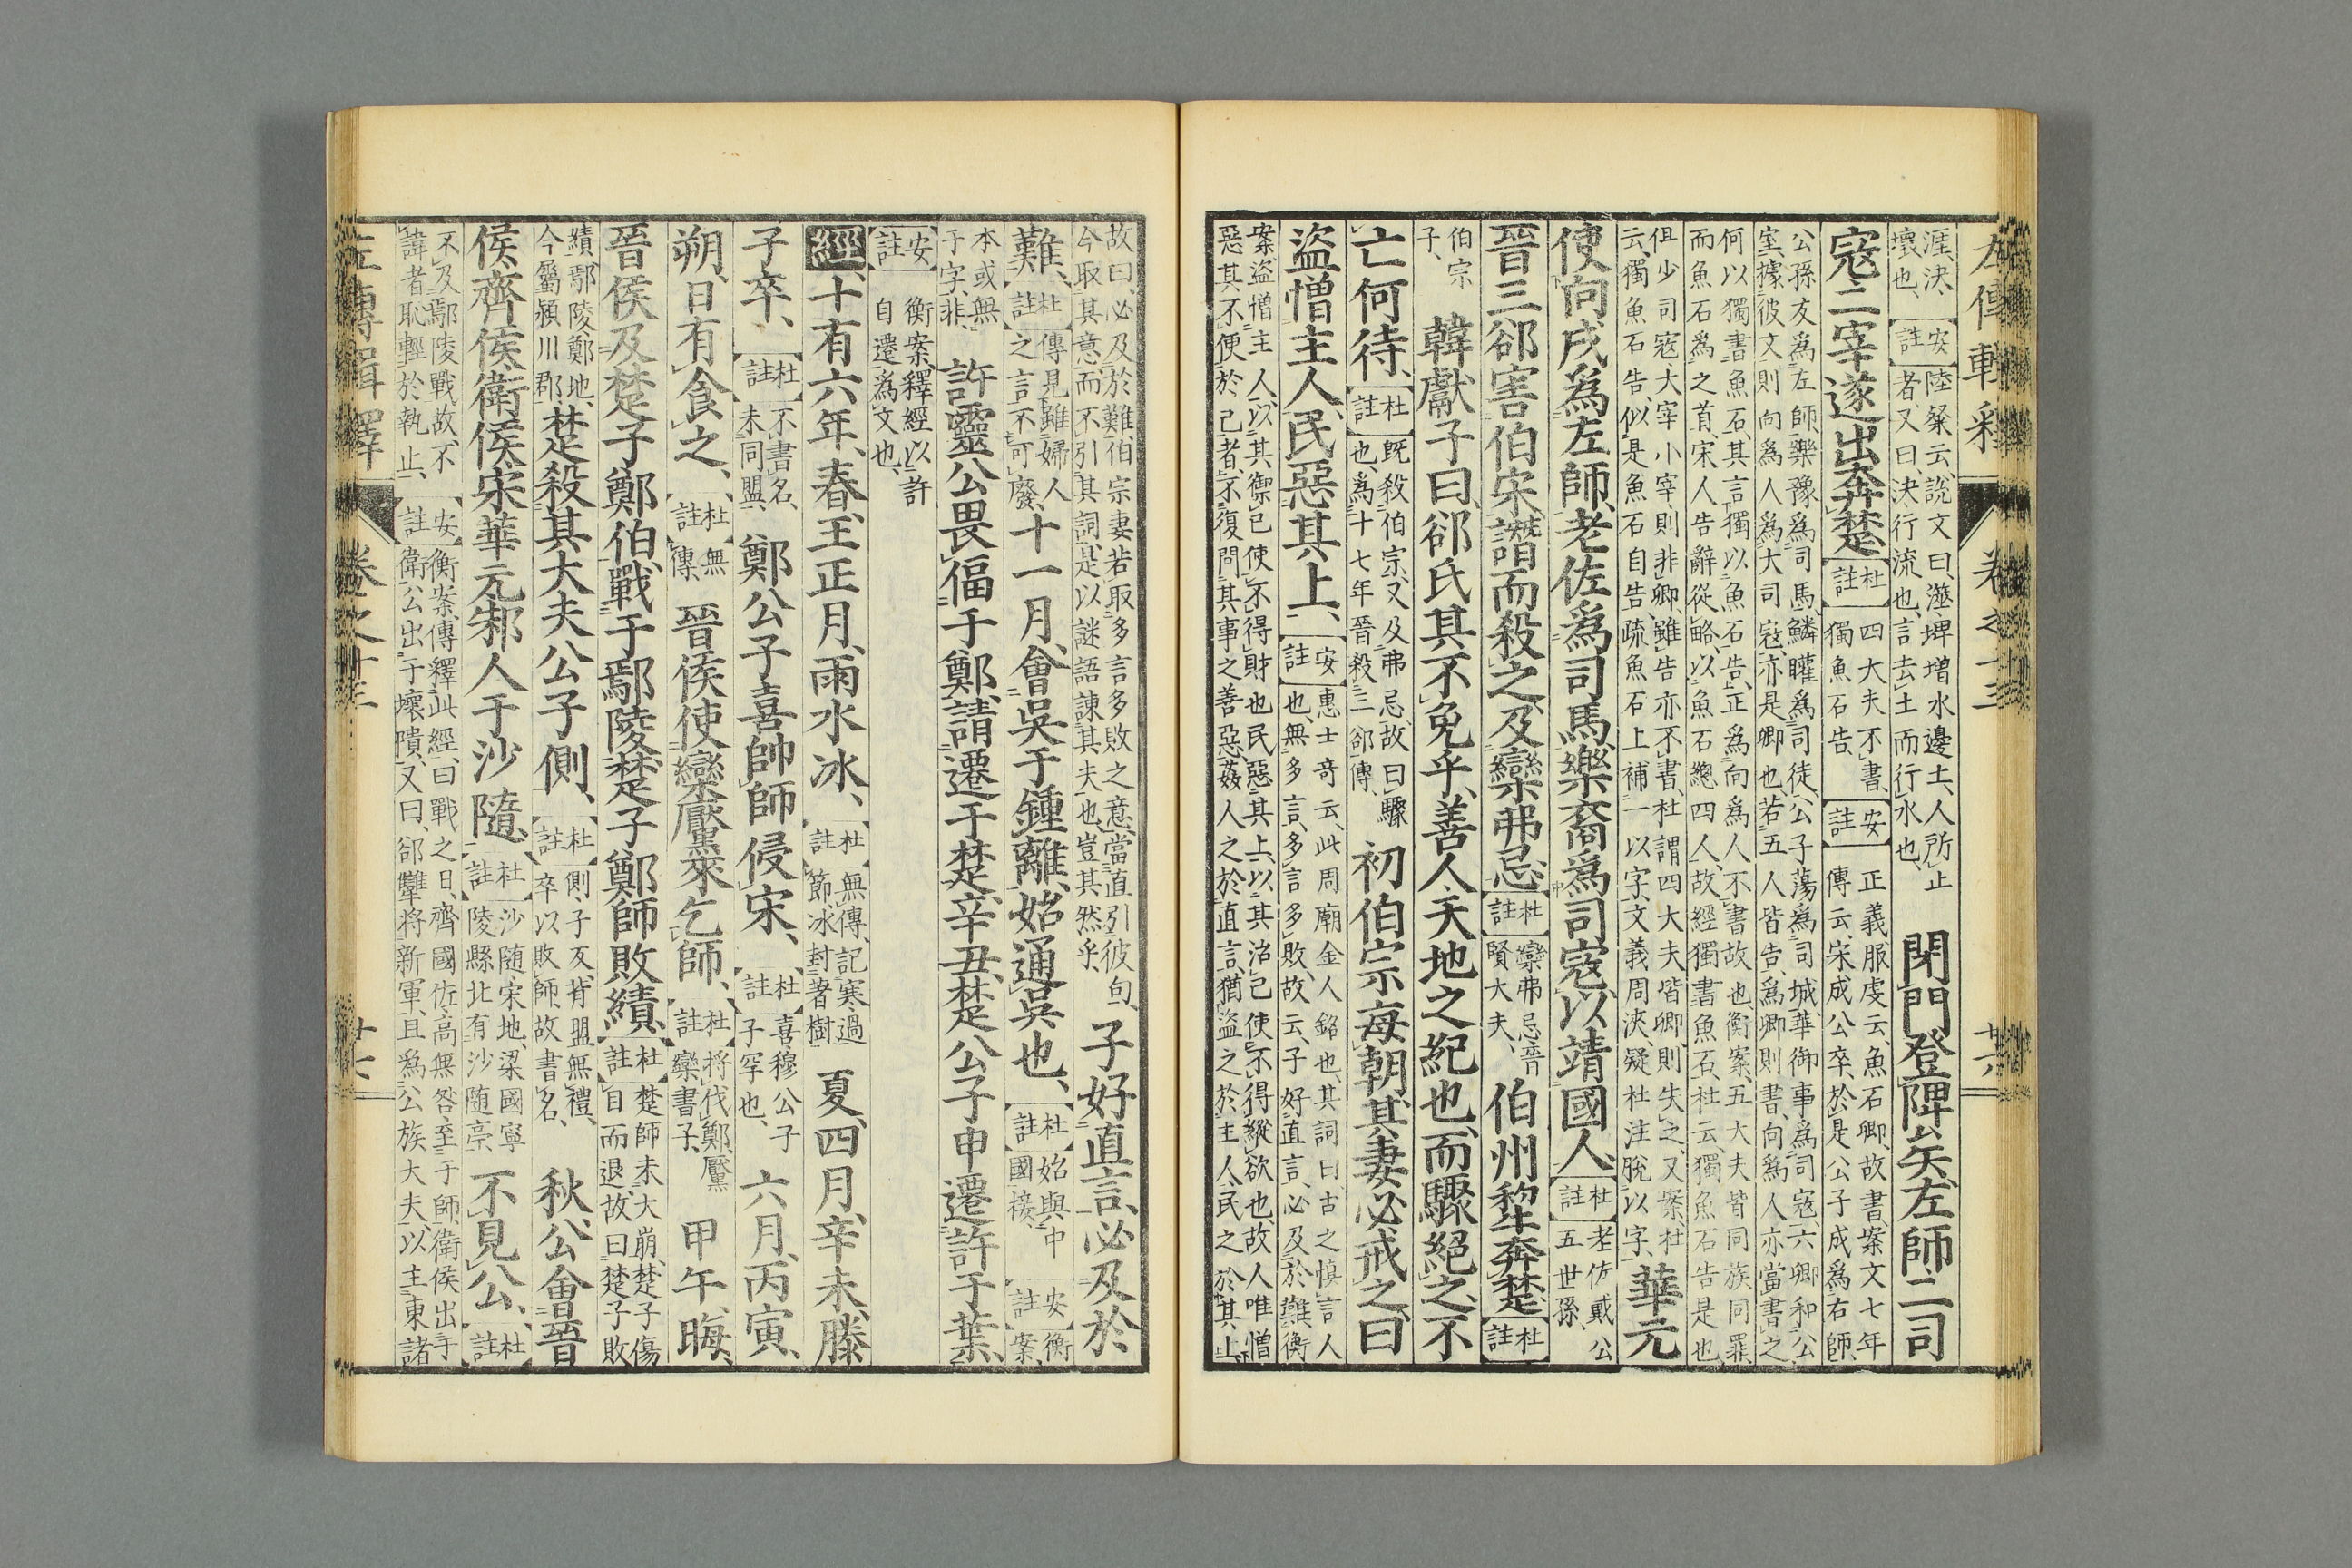 左傳輯釋 卷之十三 廿六
涯決、壞也、安註陸粲云、說文曰、澨、埤增水邊土、人所止者、又曰、決、行流也、言去土而行水也、閉門登陴矣、左師、二司
寇、二宰遂出奔楚、杜註四大夫不書、獨魚石告、安註正義、服虔云、魚石卿、故書、案文七年傳云、宋成公卒、於是公子成爲右師、
公孫友爲左師、樂豫爲司馬、鱗矔爲司徒、公子蕩爲司城、華御事爲司寇、六卿和公室、據彼文則向爲人爲大司寇、亦是卿也、若五人皆告、爲卿則書、向爲人亦當書之、
何以獨書魚石、其言獨以魚石告、正爲向爲人不書故也、衡案、五大夫皆同族同罪、而魚石爲之首、宋人告辭從略、以魚石總四人、故經獨書魚石、杜云、獨魚石告是也、
但少司寇、大宰小宰、則非卿、雖告亦不書、杜謂四大夫皆卿、則失之、又案、杜云、獨魚石告、似是魚石自告、疏魚石上補一以字、文義周浹、疑杜注脫以字、華元
使向戌爲左師、老佐爲司馬、樂裔爲司寇、以靖國人、杜註老佐戴公五世孫、
晉三郤害伯宋、譖而殺之、及欒弗忌、杜註欒弗忌晉賢大夫、伯州犂奔楚、杜註
伯宗子、韓獻子曰、郤氏其不免乎、善人、天地之紀也、而驟絕之、不
亡何待、杜註既殺伯宗、又及弗忌、故曰驟也、爲十七年晉殺三郤傳、初伯宗每朝、其妻必戒之曰、
盜憎主人、民惡其上、安註惠士奇云、此周廟金人銘也、其詞曰、古之慎言人也、無多言、多言多敗、故云、子好直言、必及於難、衡
案、盜憎主人、以其禦己使不得財也、民惡其上、以其治己使不得縱欲也、故人唯憎惡其不便於己者、不復問其事之善惡、姦人之於直言、猶盜之於主人、民之於其上、
故曰、必及於難、伯宗妻若取多言多敗之意、當直引彼句、今取其意、而不引其詞、是以謎語諫其夫也、豈其然乎、子好直言、必及於
難、杜註傳見雖婦人之言不可廢、十一月、會吳于鍾離、始通吳也、杜註始與中國接、安註衡案、
本或無于字、非、許靈公畏偪于鄭、請遷于楚、辛丑、楚公子申遷許于葉、
安註衡案、釋經以許自遷爲文也、
經、十有六年、春、王正月、雨水冰、杜註無傳、記寒過節、冰封著樹、夏、四月、辛未、滕
子卒、杜註不書名、未同盟、鄭公子喜帥師侵宋、杜註喜、穆公子子罕也、六月、丙寅、
朔、日有食之、杜註無傳、晉侯使欒黶來乞師、杜註將伐鄭、黶欒書子、甲午、晦、
晉侯及楚子鄭伯、戰于鄢陵、楚子鄭師敗績、杜註楚師未大崩、楚子傷目而退、故曰楚子敗
績、鄢陵鄭地、今屬潁川郡、楚殺其大夫公子側、杜註側、子反、背盟無禮、卒以敗師、故書名、秋、公會晉
侯、齊侯、衛侯、宋華元、邾人于沙隨、杜註沙隨宋地、梁國寧陵縣北有沙隨亭、不見公、杜註
不及鄢陵戰、故不諱者恥輕於執止、安註衡案、傳釋此經、曰戰之日、齊國佐高無咎至于師、衛侯出于衛、公出于壞隤、又曰、郤犨將新軍、且爲公族大夫、以主東諸
左傳輯釋 卷之十三 廿七